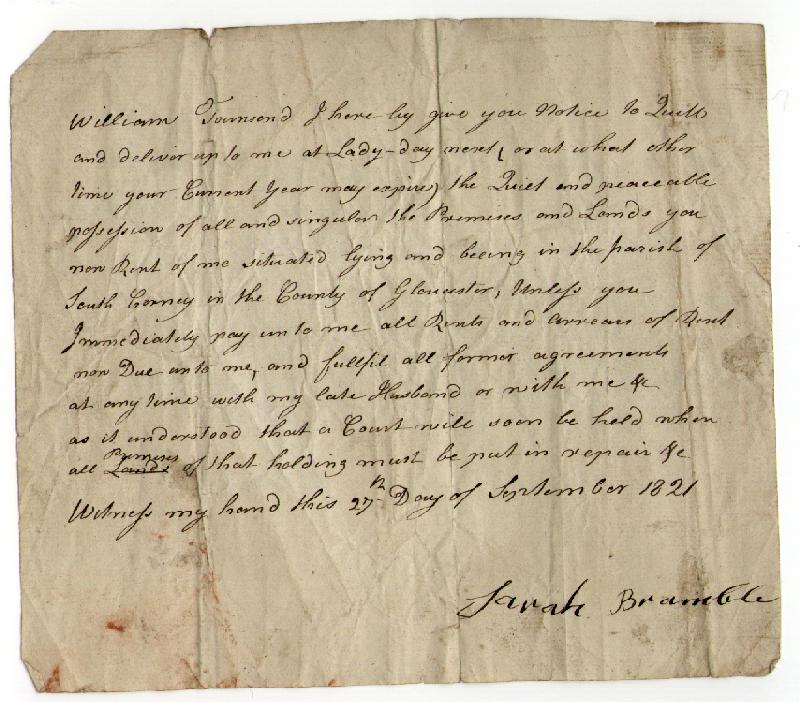 William Townsend I here by give you Notice to Quitt
and deliver up to me at Lady-day next, or at what other
time your Current Year may expire, the Quiet and peaceable
possession of all and singular the Premeses and Lands you
now Rent of me situated lying and beeing in the parish of
South Cerney in the County of Gloucester, Unless you
Immediately pay unto me all Rents and arrears of Rent
now Due unto me, and fullfil all former agreements
at any time with my late Husband or with me &c
as it understood that a Court will soon be held when
all Lands Premeses of that holding must be put in repair &c
Witness my hand this 27th Day of September 1821
Sarah Bramble